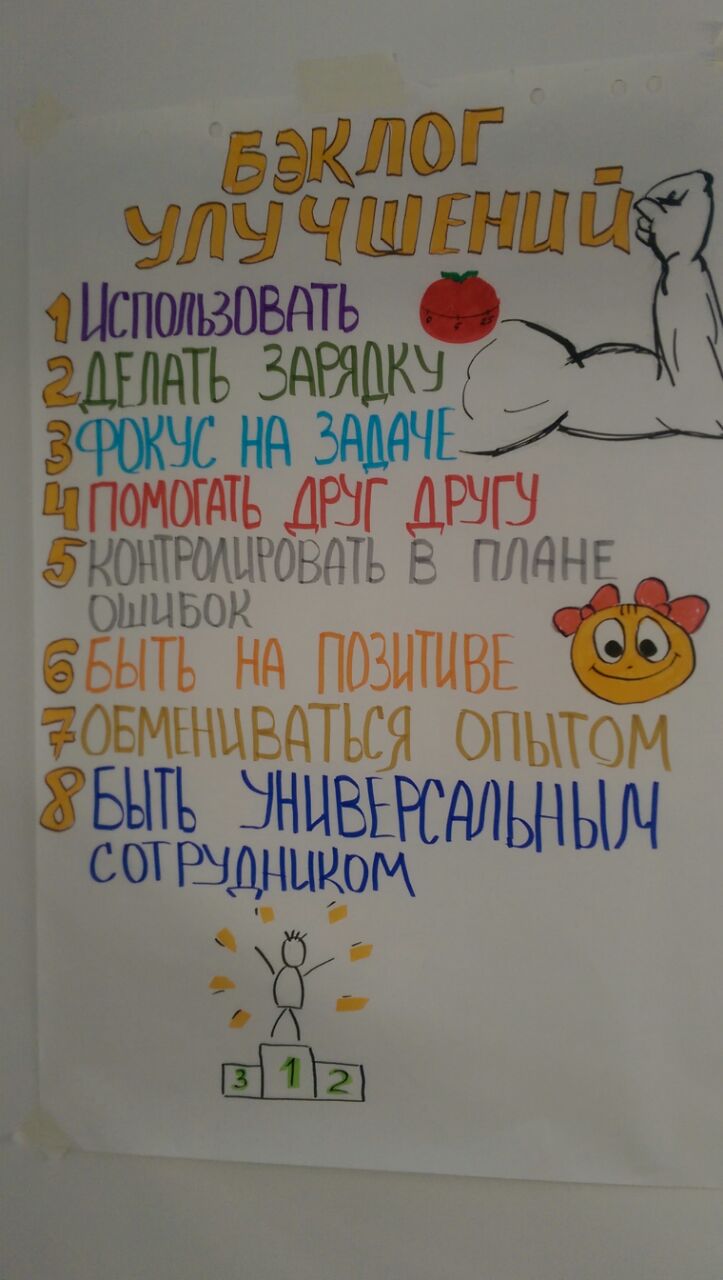 БЭКЛОГ
УЛУЧШЕНИЙ
1 ИСПОЛЬЗОВАТЬ
0 5 25
2 ДЕЛАТЬ ЗАРЯДКУ
3 ФОКУС НА ЗАДАЧЕ
4 ПОМОГАТЬ ДРУГ ДРУГУ
5 КОНТРОЛИРОВАТЬ В ПЛАНЕ
ОШИБОК
6 БЫТЬ НА ПОЗИТИВЕ
7 ОБМЕНИВАТЬСЯ ОПЫТОМ
8 БЫТЬ УНИВЕРСАЛЬНЫМ
СОТРУДНИКОМ
3 1 2